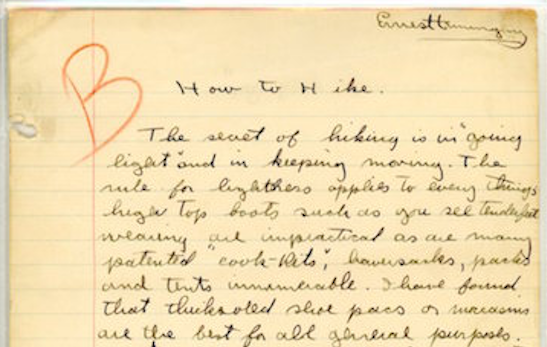 Ernest Hemingway
B
How to Hike.
The secret of hiking is in "going
light" and in keeping moving. The
rule for lightness applies to every things
high top boots such as you see tenderfeet
wearing are impractical as are many
patented "cook-kits", haversacks, packs
and tents innumerable. I have found
that thick soled shoe pacs or moccasins
are the best for all general purposes.